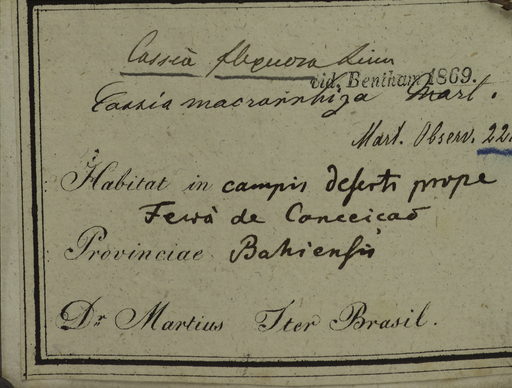 Cassia flexuosa Linn
vid. Bentham 1869.
Cassia macrarrhiza Mart.
Mart. Observ. 22
Habitat in campis desertis prope
Feira de Conceicaõ
Provinciae Bahiensis
Dr Martius Iter Brasil.